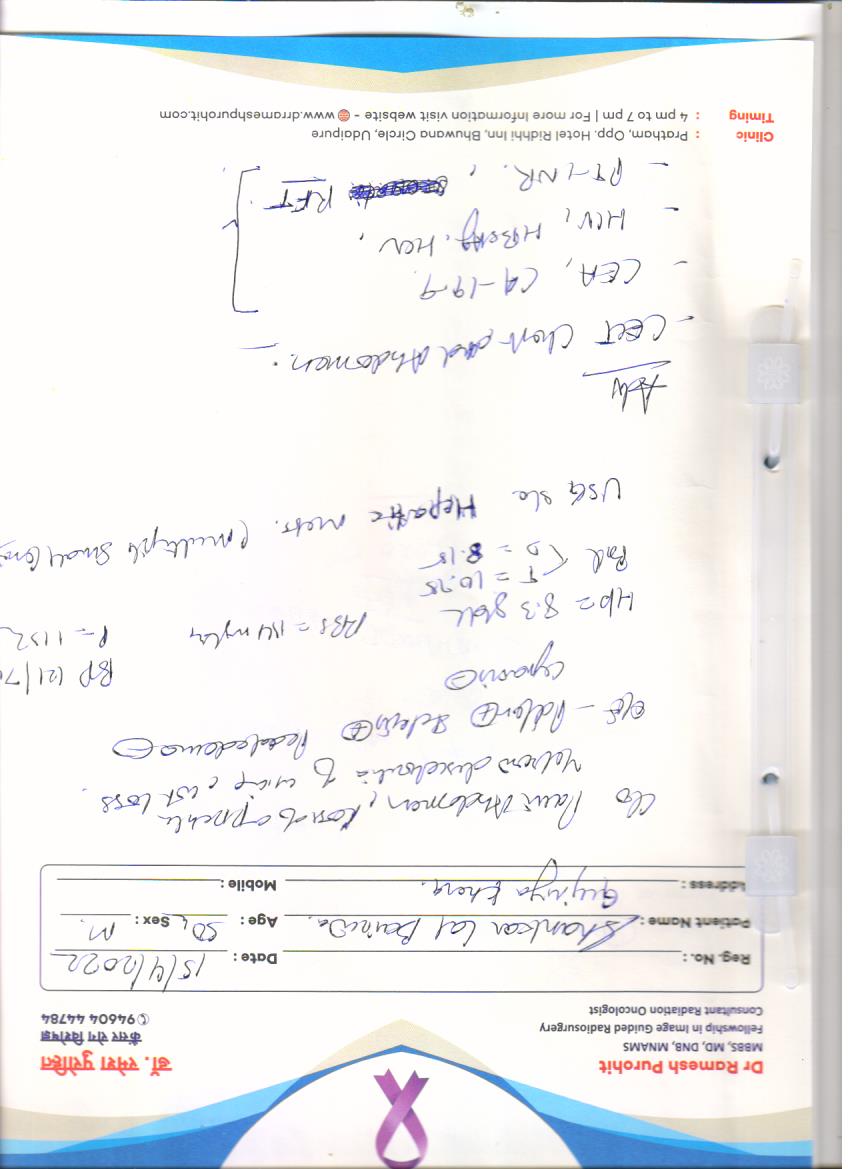 Dr Ramesh Purohit
MBBS, MD, DNB, MNAMS
Fellowship in Image Guided Radiosurgery
Consultant Radiation Oncologist
डॉ. रमेश पुरोहित
कैंसर रोग विशेषज्ञ
94604 44784
Reg. No.: Date: 15/4/2022
Patient Name: Shankar Lal Age: 50 Sex: M.
Address: Mobile:
C/o Pain Abdomen, Loss of appetite
Yellow discoloration of urine, wt loss.
O/E - Pallor + Icterus + Pedaledema -
Cyanosis -
BP 121/7
Hb = 8.3 g/dl RBS = 154 mg/dl P = 115
Bil T = 10.95
D = 8.15
USG s/o Hepatic mets. (multiple small
Adv
- CECT Chest and Abdomen.
- CEA, CA-19.9
- HIV, HBsAg, HCV,
- PT-INR, RFT
Clinic : Pratham, Opp. Hotel Ridhhi Inn, Bhuwana Circle, Udaipure
Timing : 4 pm to 7 pm | For more Information visit website - www.drrameshpurohit.com